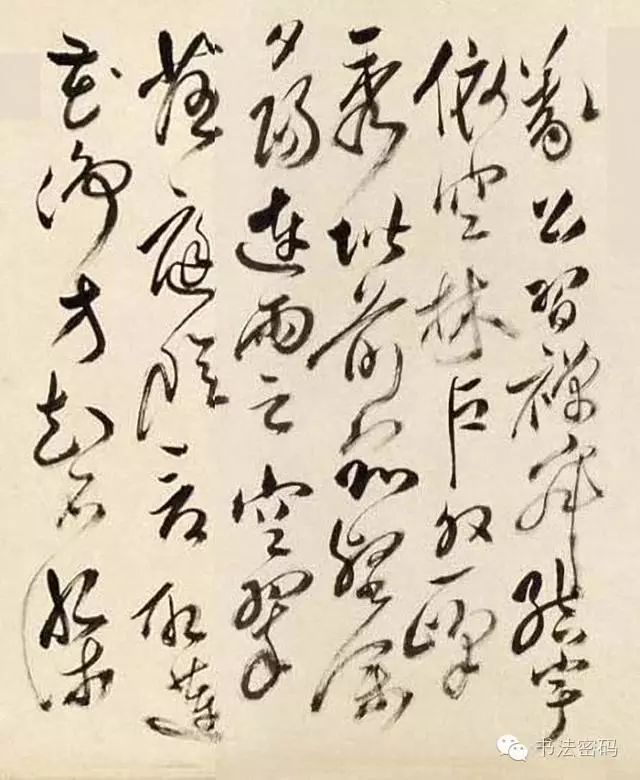 義公習禪寂結宇
依空林戶外一峰
秀階前眾壑深
夕陽連雨足空翠
落庭陰看取蓮
花淨方知不染
书法密码